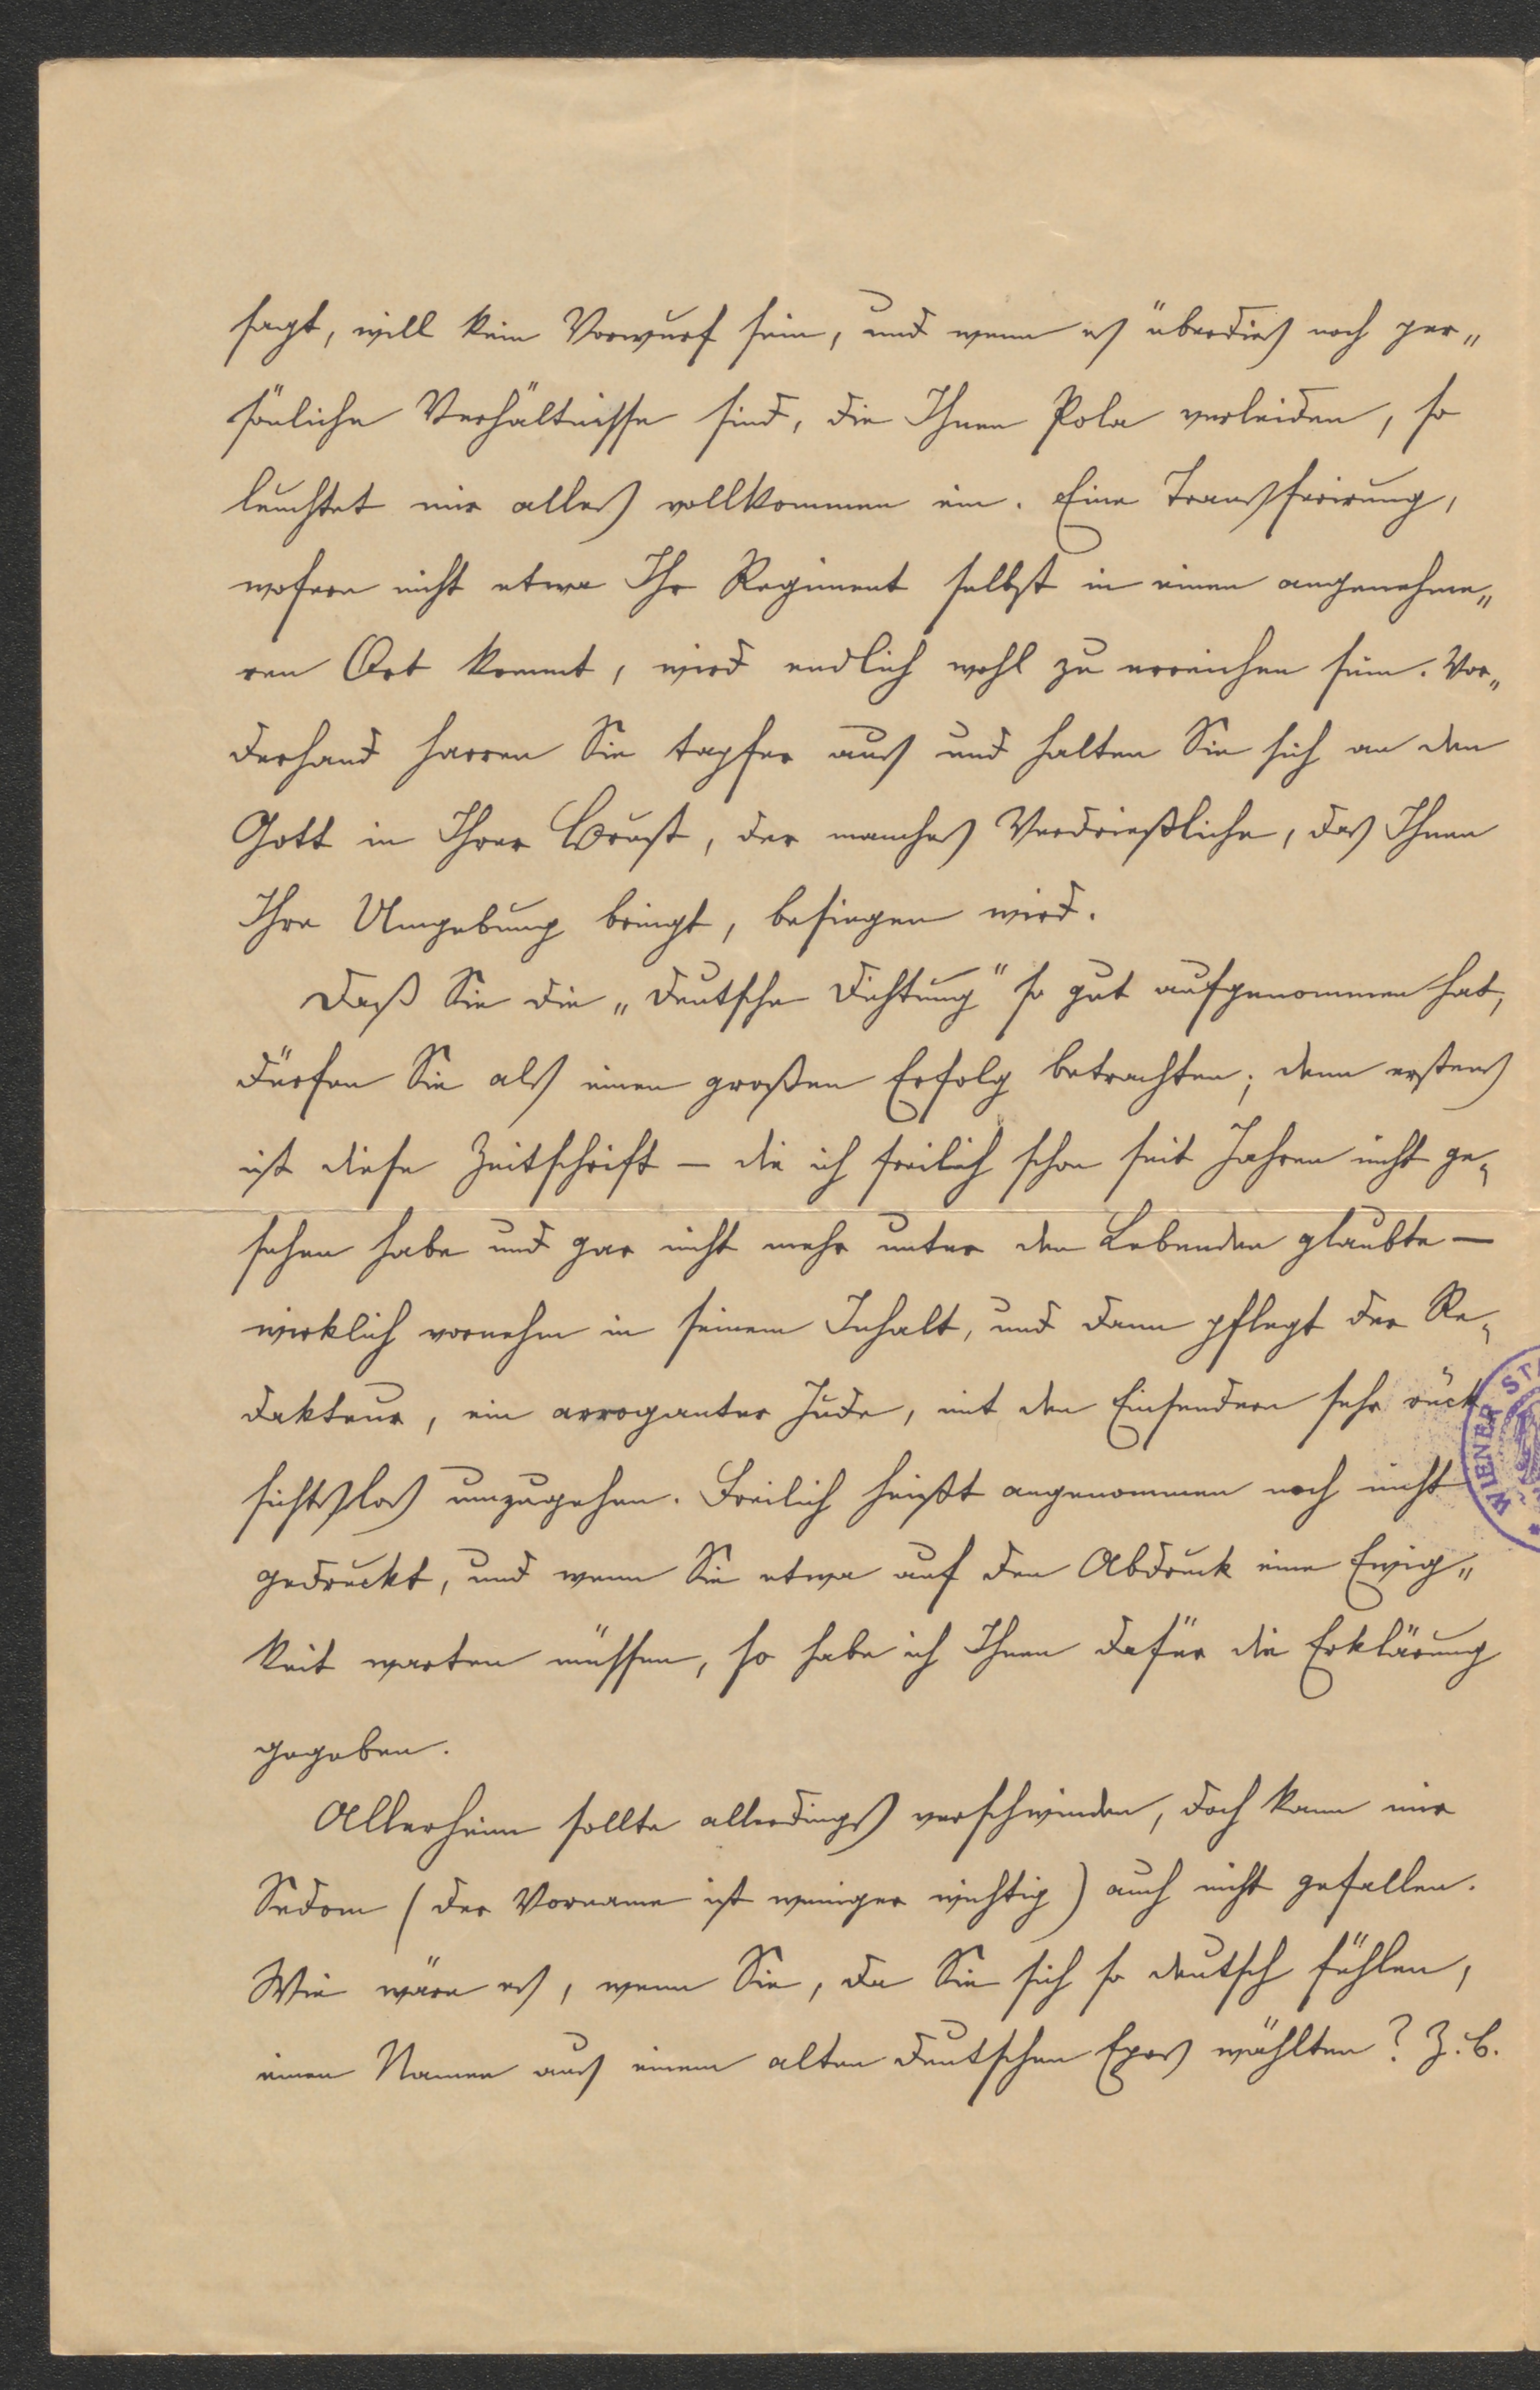 sagt, will kein Vorwurf sein, und wenn es überdies noch per„
sönliche Verhältnisse sind, die Ihnen Pola verleiden, so
leuchtet mir alles vollkommen ein. Eine Transferirung,
wofern nicht etwa Ihr Regiment selbst in einen angenehme„
ren Ort kommt, wird endlich wohl zu erreichen sein. Vor„
derhand harren Sie tapfer aus und halten Sie sich an den
Gott in Ihrer Brust, der manches Verdrießliche, das Ihnen
Ihre Umgebung bringt, besiegen wird.
Daß Sie die „Deutsche Dichtung“ so gut aufgenommen hat,
dürfen Sie als einen großen Erfolg betrachten; denn erstens
ist diese Zeitschrift – die ich freilich schon seit Jahren nicht ge„
sehen habe und gar nicht mehr unter den Lebenden glaubte –
wirklich vornehm in seinem Inhalt, und dann pflegt der Re„
dakteur, ein arroganter Jude, mit den Einsendern sehr rück
sichtslos umzugehen. Freilich heißt angenommen noch nicht
gedruckt, und wenn Sie etwa auf den Abdruck eine Ewig„
keit warten müssen, so habe ich Ihnen dafür die Erklärung
gegeben.
Allerheim sollte allerdings verschwinden, doch kann mir
Sedom (der Vorname ist weniger wichtig) auch nicht gefallen.
Wie wäre es, wenn Sie, da Sie sich so deutsch fühlen,
einen Namen aus einem alten deutschen Epos wählten? Z. B.
WIENER ST